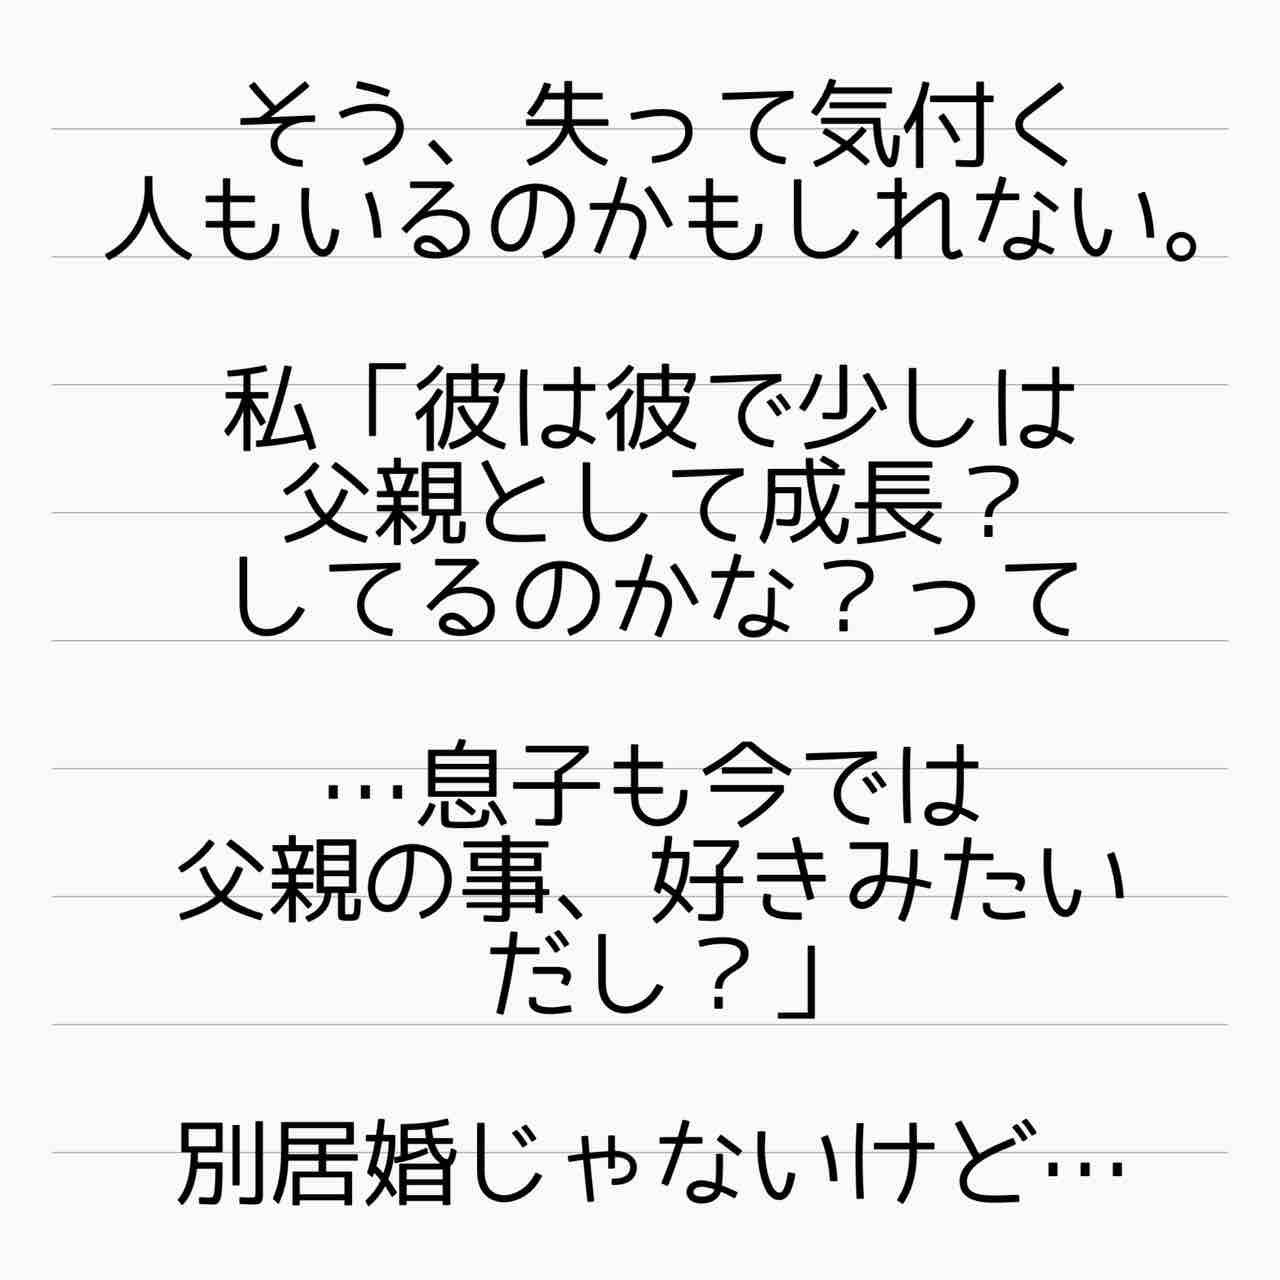 そう、失って気付く
人もいるのかもしれない。
私「彼は彼で少しは
父親として成長？
してるのかな？って
…息子も今では
父親の事、好きみたい
だし？」
別居婚じゃないけど…